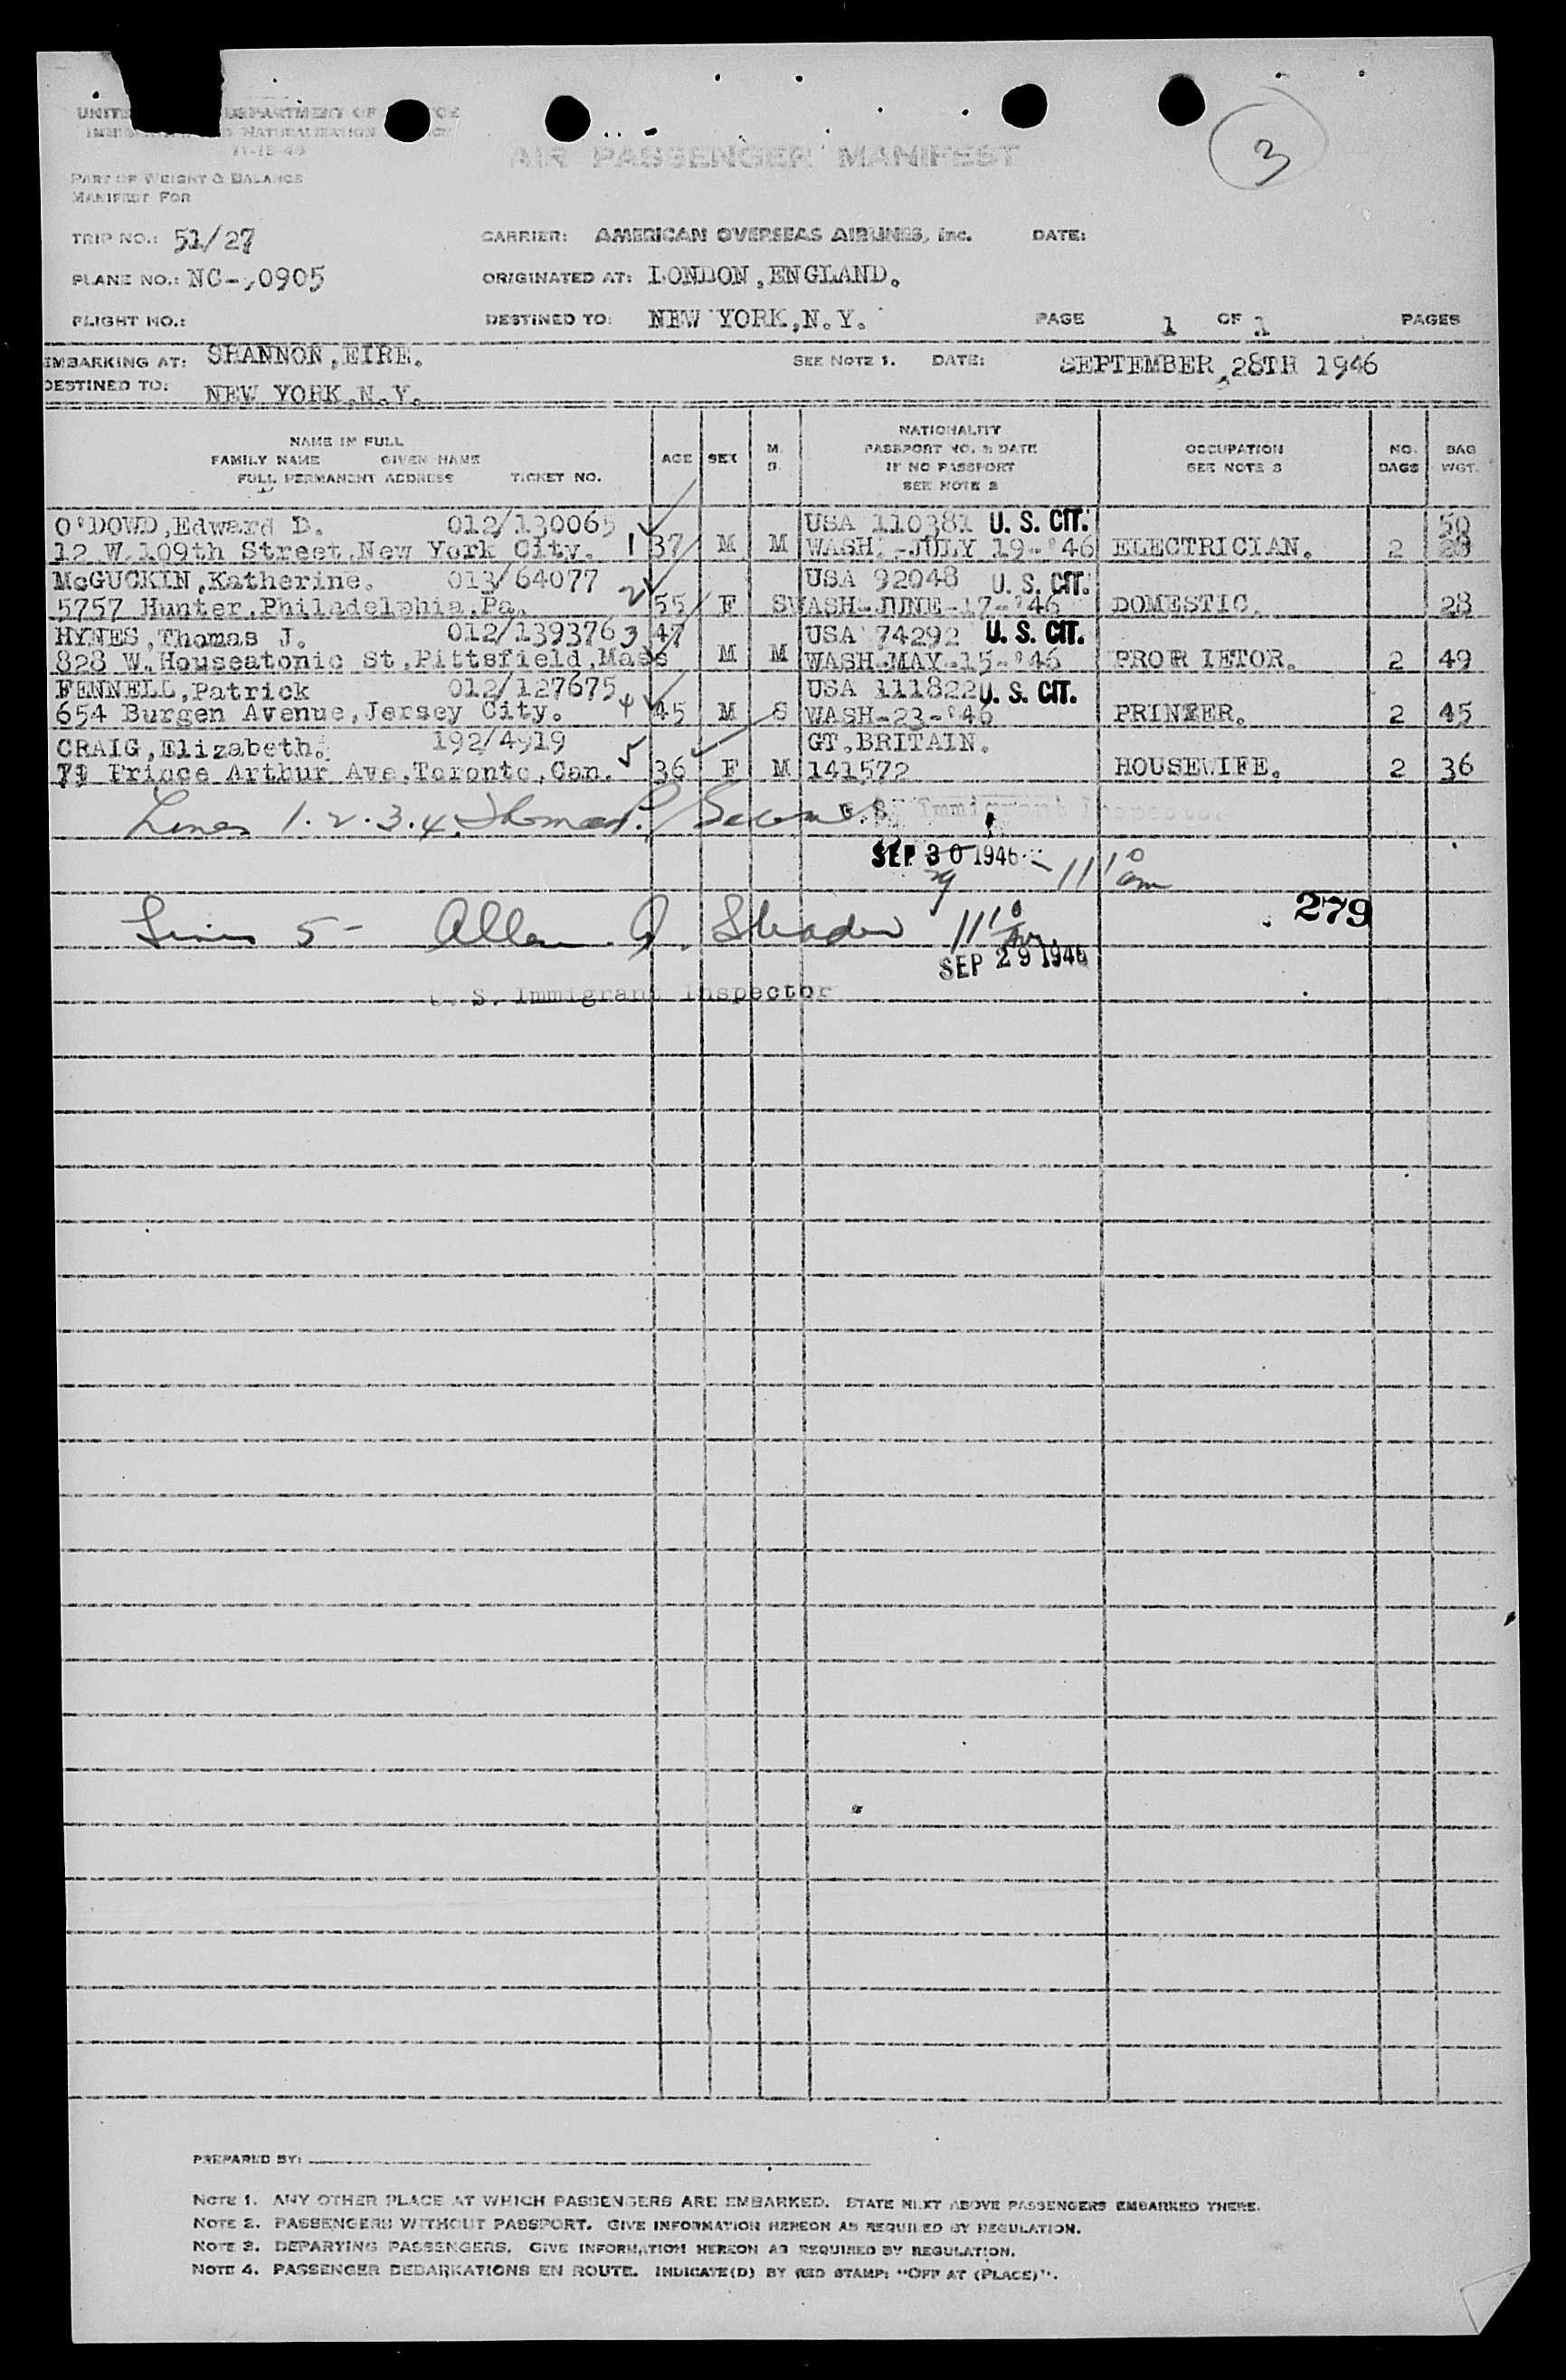 DEPARTMENT OF
11-15-45
AIR PASSENGER MANIFEST
3
PART OF WEIGHT & BALANCE
MANIFEST FOR
TRIP NO.: 51/27 CARRIER: AMERICAN OVERSEAS AIRLINES, Inc. DATE:
PLANE NO.: NC- 0905 ORIGINATED AT: LONDON, ENGLAND.
FLIGHT NO.: DESTINED TO: NEW YORK, N.Y. PAGE 1 OF 1 PAGES
EMBARKING AT: SHANNON, EIRE. SEE NOTE 1. DATE: SEPTEMBER, 28TH 1946
DESTINED TO: NEW YORK, N.Y.
NAME IN FULL
FAMILY NAME GIVEN NAME
FULL PERMANENT ADDRESS TICKET NO.
AGE SEX M. S.
NATIONALITY
PASSPORT NO. & DATE
IF NO PASSPORT
SEE NOTE 2
OCCUPATION
SEE NOTE 3
NO. BAGS
BAG WGT.
O'DOWD, Edward D. 012/130065 USA 110381 U. S. CIT. 50
12 W. 109th Street, New York City. 1 37 M M WASH.-JULY 19-'46 ELECTRICIAN. 2
McGUCKIN, Katherine. 013/64077 USA 92048 U. S. CIT.
5757 Hunter, Philadelphia, Pa. 2 55 F S WASH-JUNE-17-'46 DOMESTIC. 28
HYNES, Thomas J. 012/139376 3 47 USA 74292 U. S. CIT.
828 W. Houseatonic St, Pittsfield, Mass M M WASH-MAY-15-'46 PROPRIETOR. 2 49
FENNELL, Patrick 012/127675 4 USA 111822 U. S. CIT.
654 Burgen Avenue, Jersey City. 45 M S WASH-23-'46 PRINTER. 2 45
CRAIG, Elizabeth. 192/4919 5 GT. BRITAIN.
71 Prince Arthur Ave, Toronto, Can. 36 F M 141572 HOUSEWIFE. 2 36
Lines 1.2.3.4. U.S. Immigrant Inspector
SEP 30 1946 - 11 10 am
29
279
Lines 5- Allen 11 10
SEP 29 1946
U. S. Immigrant Inspector
PREPARED BY:
NOTE 1. ANY OTHER PLACE AT WHICH PASSENGERS ARE EMBARKED. STATE NEXT ABOVE PASSENGERS EMBARKED THERE.
NOTE 2. PASSENGERS WITHOUT PASSPORT. GIVE INFORMATION HEREON AS REQUIRED BY REGULATION.
NOTE 3. DEPARTING PASSENGERS. GIVE INFORMATION HEREON AS REQUIRED BY REGULATION.
NOTE 4. PASSENGER DEBARKATIONS EN ROUTE. INDICATE(D) BY RED STAMP: "OFF AT (PLACE)".